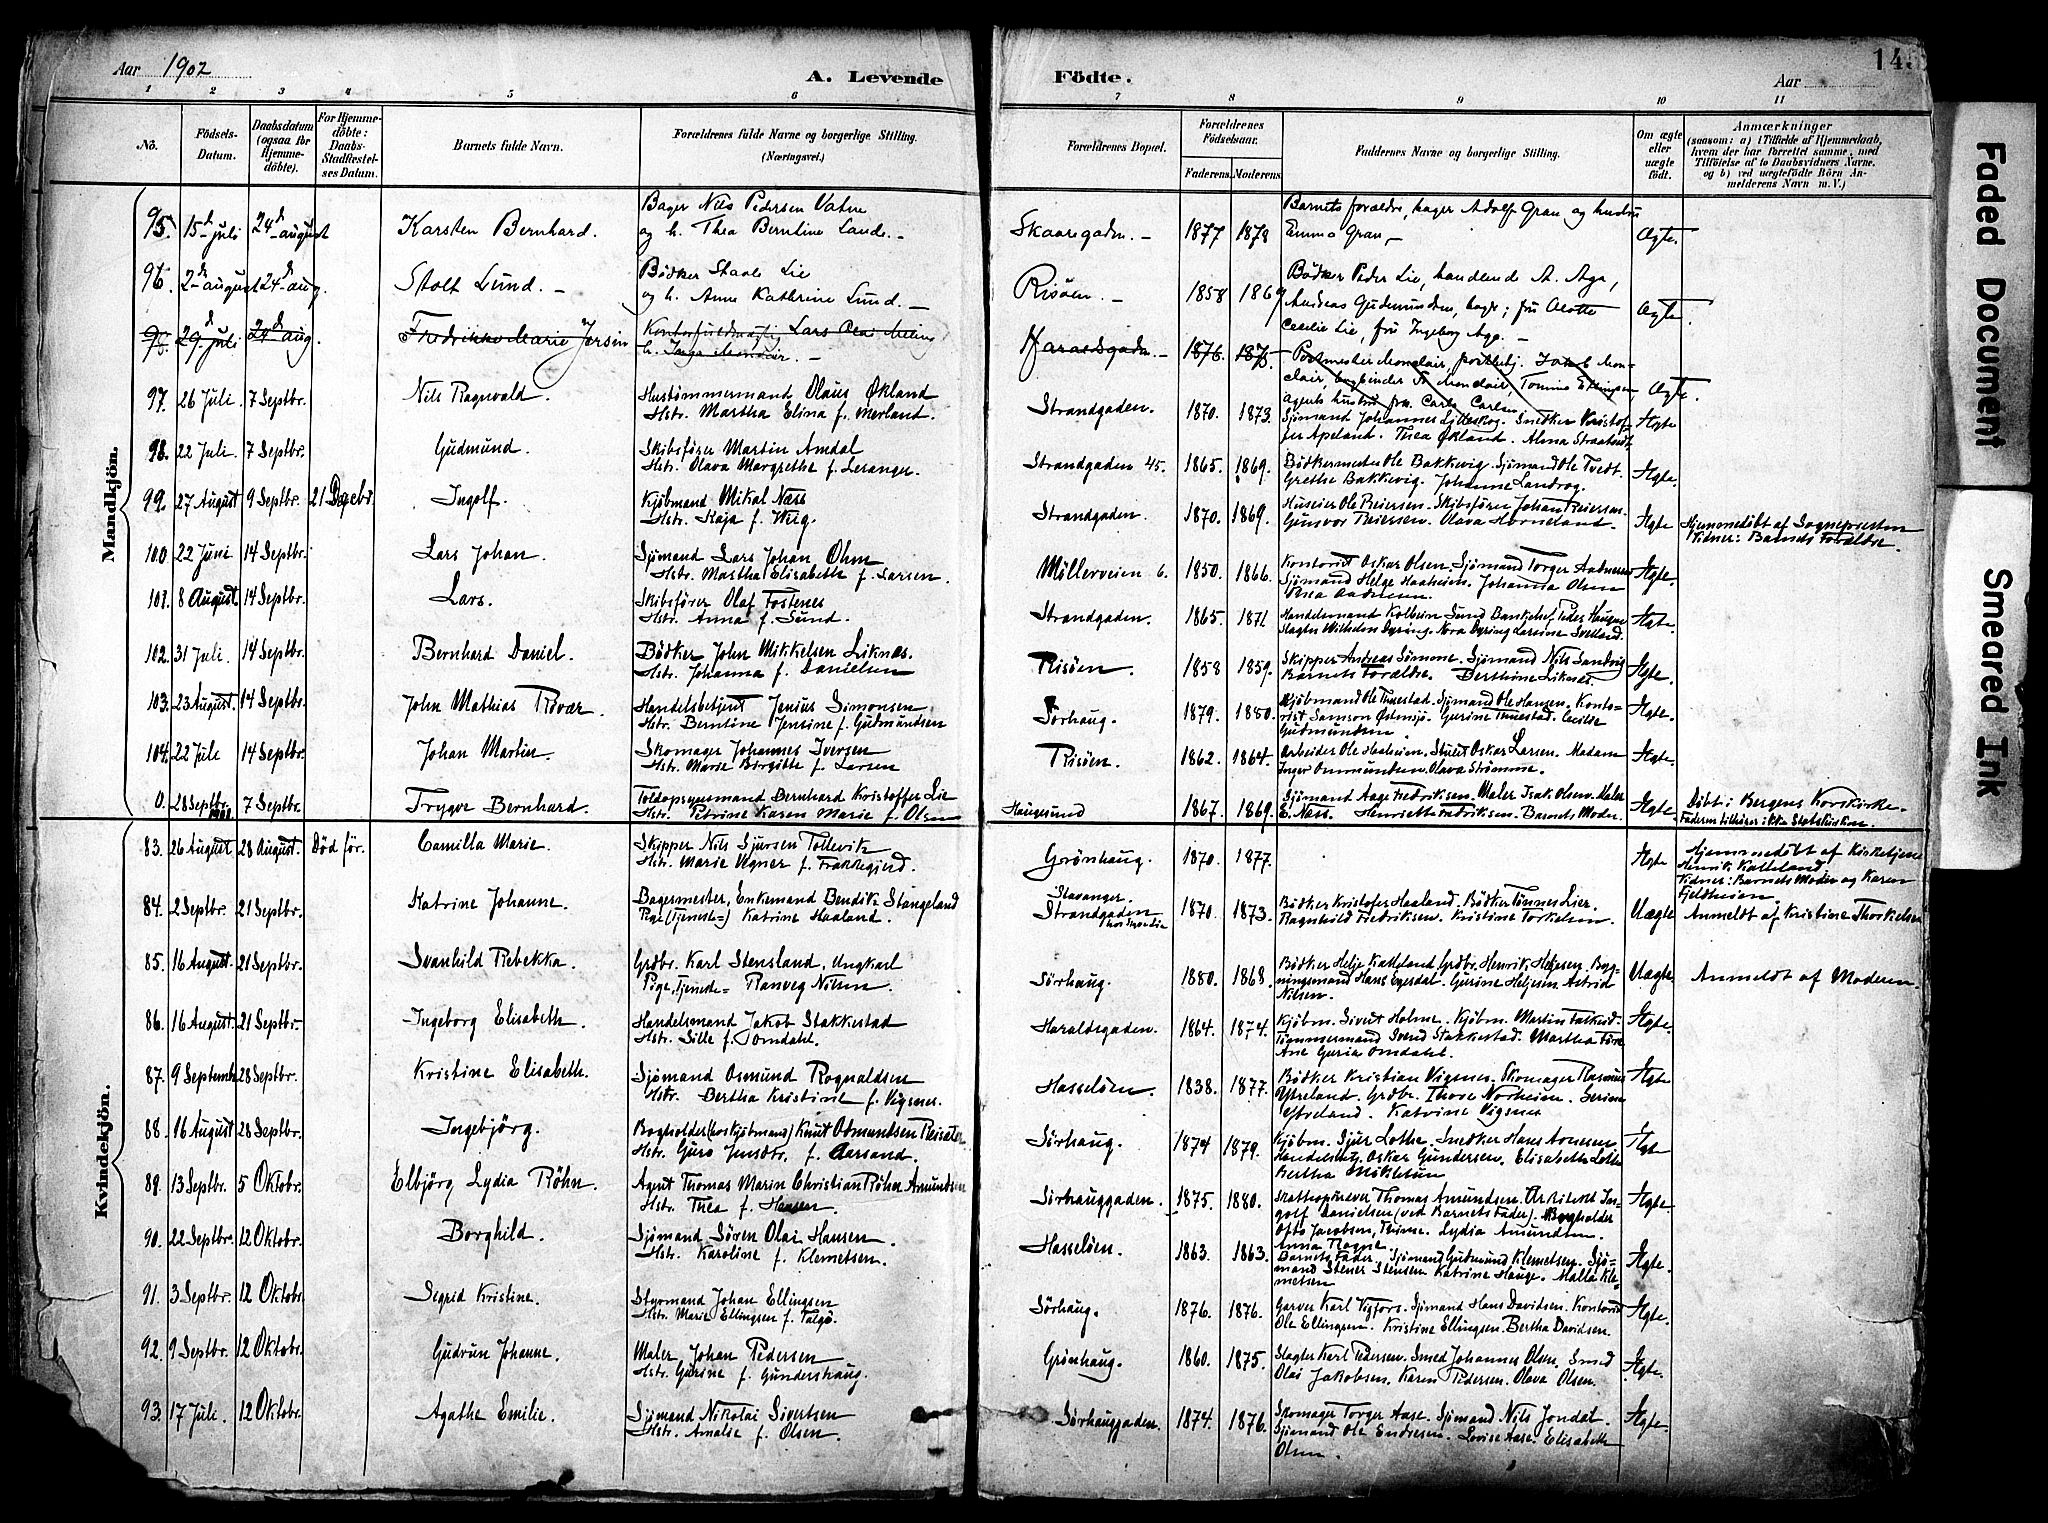 Aar 1902
A. Levende Födte.
Aar
14
1 2 3 4 5 6 7 8 9 10 11
No.
Födsels-Datum.
Daabsdatum (ogsaa for Hjemmedöbte).
For Hjemmedöbte: Daabs-Stadfæstelses Datum.
Barnets fulde Navn.
Forældrenes fulde Navne og borgerlige Stilling. (Næringsvei.)
Forældrenes Bopæl.
Forældrenes Födselsaar.
Faderens. Moderens.
Faddernes Navne og borgerlige Stilling.
Om ægte eller uægte födt.
Anmærkninger
(saasom: a) i Tilfælde af Hjemmedaab, hvem der har forrettet samme, med Tilföielse af to Daabsvidners Navne, og b) ved uægtefödte Börn Anmelderens Navn m. V.)
Mandkjön.
95. 15d juli 24d august Karsten Bernhard. Bager Nils Pedersen Vatne
og h. Thea Berntine Lande. Skaaregaden. 1877 1878 Barnets forældre, bager Adolf Gran og hustru
Emma Gran Ægte.
96. 2d august 24d aug. Stolt Lund. Bödker Staale Lie
og h. Anne Kathrine Lund. Risöen. 1858 1869 Bödker Peder Lie, handlende A. Aga,
Andreas Gudmundsen, bager; fru
Cecilie Lie, fru Ingeborg Aga. Ægte.
29d juli 24d aug. Fredrikke Marie Lars
Haraldsgaden. 1876. 1875 Postmester Monclair, Jakob Monclair, bogbinder Monclair, Tomine Ellingsen,
agents hustru fru Carla Carlsen Ægte.
97. 26 Juli. 7 Septbr. Nils Ragnvald. Hustömmermand Olaus Økland
Hstr. Martha Elina f. Merland. Strandgaden. 1870. 1873. Sjömand Johannes Liltleskog. Snedker Kristoffer Apeland. Thea Økland. Alma Ægte
98. 22 Juli. 7 Septbr. Gudmund. Skibsförer Martin Amdal
Hstr. Olava Margrethe f. Leranger. Strandgaden 45. 1865. 1869. Bödkermester Ole Bakkevig. Sjömand Ole Tvedt.
Grethe Bakkevig. Johanne Ægte.
99. 27 August 9 Septbr. 21 Ingolf. Kjöbmand Mikal Næss
Hstr. Kaja f. Wiig. Strandgaden. 1870. 1869. Huseier Ole Reiersen. Skibsförer Johan Reiersen.
Gunvor Reiersen. Olava Horneland. Ægte Hjemmedöbt af Sognepresten
Vidner: Barnets Forældre.
100. 22 Juni 14 Septbr. Lars Johan. Sjömand Lars Johan Ohm
Hstr. Martha Elisabeth f. Larsen. Möllerveien 6. 1850. 1866. Kontorist Oskar Olsen. Sjömand Torger Aadnesen
Sjömand Helge Haaheim. Johanna Olsen
Ægte.
101. 8 August 14 Septbr. Lars. Skibsförer Olaf Fostenes
Hstr. Anna f. Sund. Strandgaden. 1865. 1871 Handelsmand Kolbein Sund Bankchef Peder Haugen
Slagter Wilhelm Dyring. Nora Dyring Larsine Svetland. Ægte.
102. 31 Juli. 14 Septbr. Bernhard Daniel. Bödker John Mikkelsen Liknæs.
Hstr. Johanna f. Danielsen Risöen. 1858 1859. Skipper Andreas Sömme. Sjömand Nils Sandvig
Barnets Forældre. Berthine Liknæs. Ægte.
103. 23 August. 14 Septbr. John Mathias Rövær. Handelsbetjent Jenius Simonsen.
Hstr. Berntine Jensine f. Gudmundsen Sörhaug. 1879. 1880. Kjöbmand Ole Thuestad. Sjömand Ole Hansen. Kontorist Samson Østensjö. Gurine Thuestad. Cecilie
Gudmundsen. Ægte.
104. 22 Juli 14 Septbr. Johan Martin. Skomager Johannes Iversen
Hstr. Marie Birgitte f. Larsen Risöen. 1862 1864. Arbeider Ole Haaheim. Stuert Oskar Larsen. Madam
Inger Ommundsen. Olava Strömme. Ægte.
0. 28 Septbr. 1901 7 Septbr. Trygve Bernhard. Toldopsynsmand Bernhard Kristoffer Lie
Hstr. Petrine Karen Marie f. Olsen Haugesund 1867. 1869. Sjömand Aage Fredriksen. Maler Isak Olsen. Maler
E. Næss. Henriette Fredriksen. Barnets Moder. Ægte. Döbt i Bergens Korskirke.
Faderen tilhörer ikke Statskirken.
Kvindekjön.
83. 26 August 28 August. Död för. Camilla Marie. Skipper Nils Sjursen Tollevik
Hstr. Marie Vegner f. Frakkegjerd. Grönhaug. 1870. 1877. Ægte Hjemmedöbt af Kirketjener
Henrik Kalleland.
Vidner: Barnets Moder og Karen
Fjeldheim.
84. 2 Septbr. 21 Septbr. Katrine Johanne. Bagermester, Enkemand Bendik Stangeland
Pige (Tjeneste=) Katrine Haaland. Stavanger.
Strandgaden 1870. 1873. Bödker Kristofer Haaland. Bödker Tönnes Lier.
Ragnhild Fredriksen. Kristine Torkelsen. Uægte Anmeldt af Kristine Thorkelsen
85. 16 August. 21 Septbr. Svanhild Rebekka. Grdbr. Karl Stensland. Ungkarl
Pige, Tjeneste= Ranveg Nilsen. Sörhaug. 1880. 1868. Bödker Helje Kalleland. Grdbr. Henrik Heljesen. Bygningsmand Hans Egesdal. Gurine Heljesen. Astrid
Nilsen. Uægte Anmeldt af Moderen.
86. 16 August. 21 Septbr. Ingeborg Elisabeth. Handelsmand Jakob Stakkestad
Hstr. Sille f. Omdahl. Haraldsgaden. 1864. 1874. Kjöbm. Sivert Holme. Kjöbm. Martin Falkeid.
Tömmermand Svend Stakkestad. Martha Före
Ane Guria Omdahl. Ægte.
87. 9 Septembr 28 Septbr. Kristine Elisabeth. Sjömand Osmund Rognaldsen
Hstr. Bertha Kristine f. Vigsnes. Hasselöen. 1838. 1877. Bödker Kristian Vigsnes. Skomager Rasmus
Ytreland. Grdbr. Thore Norheim. Serine
Ytreland. Katrine Vigsnes Ægte
88. 16 August 28 Septbr. Ingebjörg. Bogholder (hos Kjöbmand) Knut Odmundsen Reisæter
Hstr. Guro Jensdtr. f. Aarsand. Sörhaug. 1874 1879. Kjöbm. Sjur Lothe. Snedker Hans Arnesen.
Handelsbetj. Oskar Gundersen. Elisabeth Lothe
Bertha Mökletun Ægte
89. 13 Septbr. 5 Oktobr. Elbjörg Lydia Röhn. Agent Thomas Marin Christian Röhn Amundsen
Hstr. Thea f. Hansen. Sörhauggaden. 1875. 1880. Skatteopkræver Thomas Amundsen. Arkitekt Ingolf Danielsen (ved Barnets Fader). Bogholder
Otto Jacobsen, Lydia Amundsen.
Anna Rogne Ægte.
90. 22 Septbr. 12 Oktobr. Borghild. Sjömand Sören Olai Hansen.
Hstr. Karoline f. Klemetsen. Hasselöen. 1863. 1863. Barnets Fader. Sjömand Gudmund Klemetsen. Sjömand Stener Stensen Katrine Hauge. Malla Klemetsen Ægte.
91. 3 Septbr. 12 Oktobr. Segrid Kristine. Styrmand Johan Ellingsen
Hstr. Marie Ellingsen f. Talgö. Sörhaug. 1876. 1876. Garver Karl Vigfors. Sjömand Hans Davidsen. Kontorist
Ole Ellingsen. Kristine Ellingsen. Bertha Davidsen. Ægte.
92. 9 Septbr. 12 Oktobr. Gudrun Johanne. Maler Johan Pedersen
Hstr. Gurine f. Gundershaug. Grönhaug. 1860. 1875. Slagter Karl Pedersen. Smed Johannes Olsen. Smed
Olai Jakobsen. Karen Pedersen. Olava Olsen. Ægte.
93. 17 Juli. 12 Oktobr. Agathe Emilie. Sjömand Nikolai Sivertsen
Hstr. Amalie f. Olsen. Sörhauggaden. 1874. 1876. Skomager Torger Aase. Sjömand Nils Jondal.
Sjömand Ole Endresen. Lovise Aase. Elisabeth
Olsen. Ægte.
Faded Document
Smeared Ink